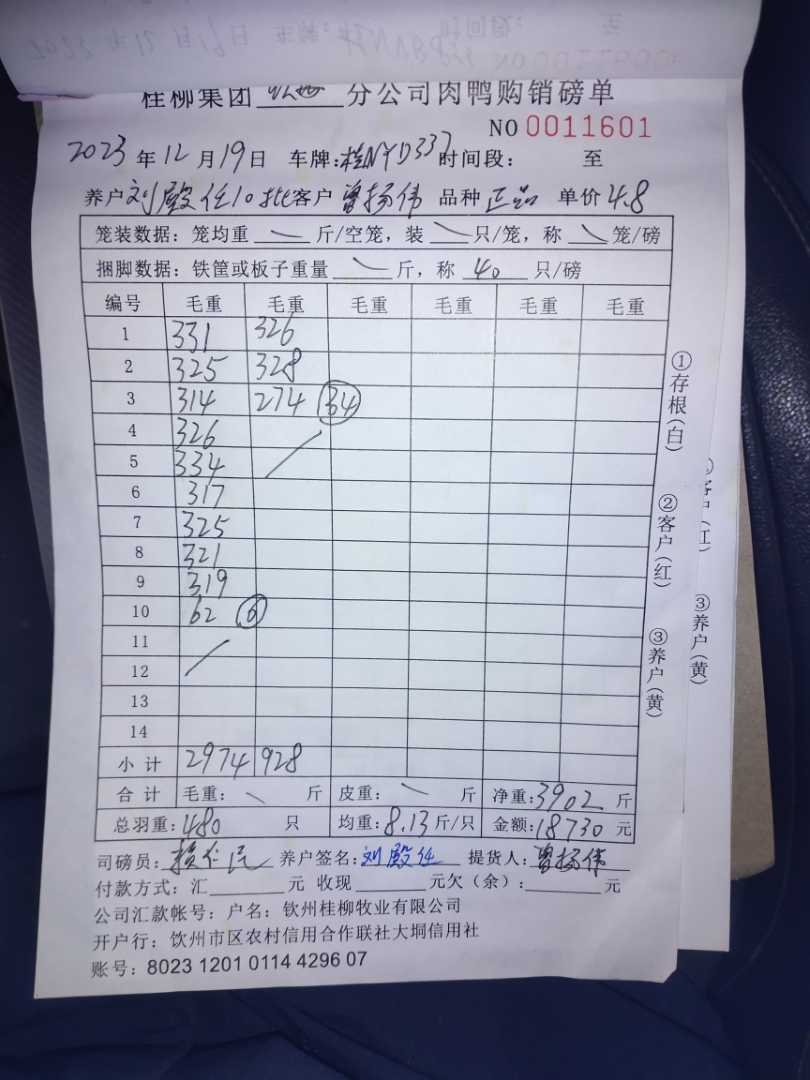 桂柳集团 钦州 分公司肉鸭购销磅单
NO 0011601
2023 年 12 月 19 日 车牌:桂NYD337 时间段: 至
养户 刘殿任10批 客户 曾扬伟 品种 正品 单价 4.8
笼装数据: 笼均重 斤/空笼, 装 只/笼, 称 笼/磅
捆脚数据: 铁筐或板子重量 斤, 称 40 只/磅
编号 毛重 毛重 毛重 毛重 毛重 毛重
1 331 326
2 325 328
3 314 274 34
4 326
5 334
6 317
7 325
8 321
9 319
10 62 6
11
12
13
14
小计 2974 928
合计 毛重: 斤 皮重: 斤 净重:3902 斤
总羽重:480 只 均重:8.13 斤/只 金额:18730 元
司磅员: 养户签名:刘殿任 提货人:曾扬伟
付款方式: 汇 元 收现 元欠(余): 元
公司汇款帐号: 户名: 钦州桂柳牧业有限公司
开户行: 饮州市区农村信用合作联社大垌信用社
账号: 8023 1201 0114 4296 07
①存根(白)
②客户(红)
③养户(黄)
客户(红)
③养户(黄)